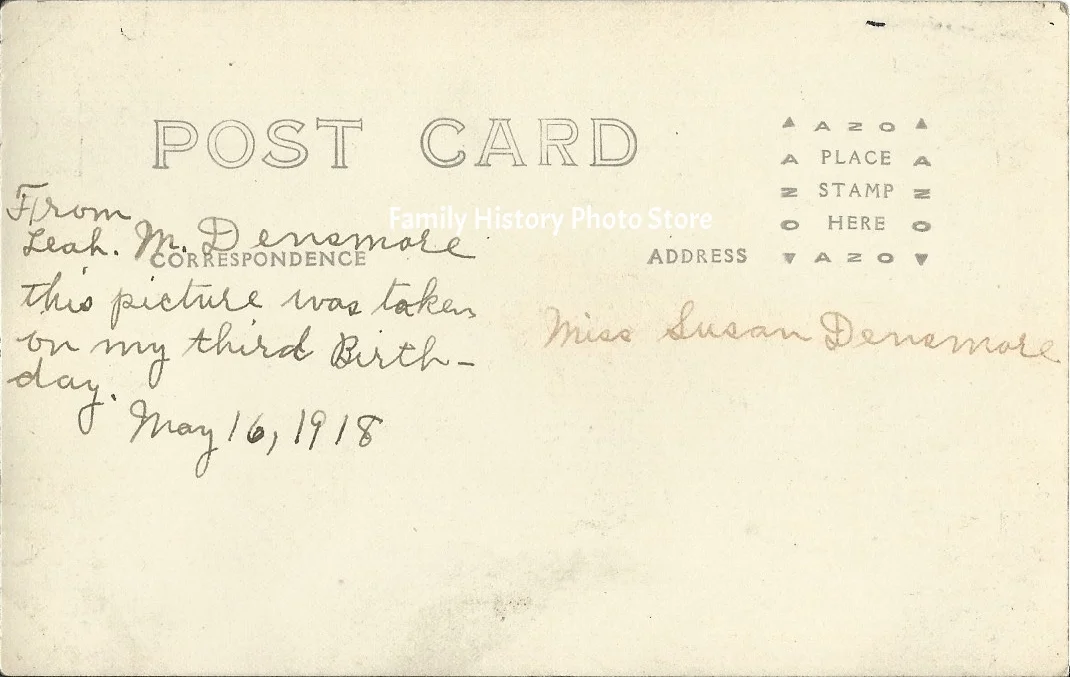 POST CARD
AZO
A PLACE A
Z STAMP Z
O HERE O
AZO
From
Leah. M. Densmore
Family History Photo Store
CORRESPONDENCE
ADDRESS
this picture was taken
on my third Birth-
day.
May 16, 1918
Miss Susan Densmore